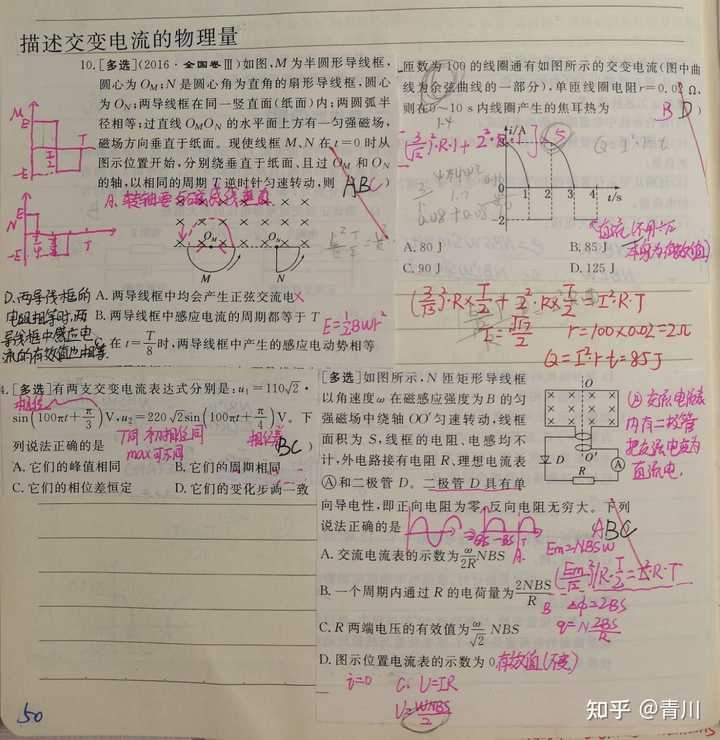 描述交变电流的物理量
10.[多选](2016·全国卷Ⅲ)如图,M为半圆形导线框,
圆心为O_M;N是圆心角为直角的扇形导线框,圆心
为O_N;两导线框在同一竖直面(纸面)内;两圆弧半
径相等;过直线O_MO_N的水平面上方有一匀强磁场,
磁场方向垂直于纸面。现使线框M、N在t=0时从
图示位置开始,分别绕垂直于纸面、且过O_M和O_N
的轴,以相同的周期T逆时针匀速转动,则 ABC)
A.转轴
M
E
T
-E
N
E
T
-E
O_M
O_N
M
N
D.两导线框的
电阻相等时,两
导线框中感应电
流的有效值也相等.
A.两导线框中均会产生正弦交流电
B.两导线框中感应电流的周期都等于T
C.在t=T/8时,两导线框中产生的感应电动势相等
E=1/2Bwr²
匝数为100的线圈通有如图所示的交变电流(图中曲
线为余弦曲线的一部分),单匝线圈电阻r=0.02 Ω,
则在0~10 s内线圈产生的焦耳热为 BD)
i/A
5
0 1 2 3 4 t/s
-2
Q=I²·r·t
A.80 J
B.85 J
C.90 J
D.125 J
(3/√2)²·R×T/2+2²·R×T/2=I²·R·T
I=√17/2
r=100×0.02=2Ω
Q=I²rt=85J
4.[多选]有两支交变电流表达式分别是:u₁=110√2·
sin(100πt+π/3)V,u₂=220√2sin(100πt+π/4)V。下
列说法正确的是 BC)
相位
T同 初相位不同
max可不同
相位差
A.它们的峰值相同
B.它们的周期相同
C.它们的相位差恒定
D.它们的变化步调一致
[多选]如图所示,N匝矩形导线框
以角速度ω在磁感应强度为B的匀
强磁场中绕轴OO′匀速转动,线框
面积为S,线框的电阻、电感均不
计,外电路接有电阻R、理想电流表
Ⓐ和二极管D。二极管D具有单
向导电性,即正向电阻为零,反向电阻无穷大。下列
说法正确的是 ABC
O
O′
D
R
A
交流电流表
内有二极管
把交流电变为
直流电.
A.交流电流表的示数为ω/2R NBS A.
B.一个周期内通过R的电荷量为2NBS/R B
C.R两端电压的有效值为ω/√2 NBS
D.图示位置电流表的示数为0 有效值(不变)
Em=NBSW
(Em/√2)²/R·T/2=I²·R·T
ΔΦ=2BS
q=N2BS/R
i=0 C. U=IR
U=WNBS/2
50
知乎 @青川